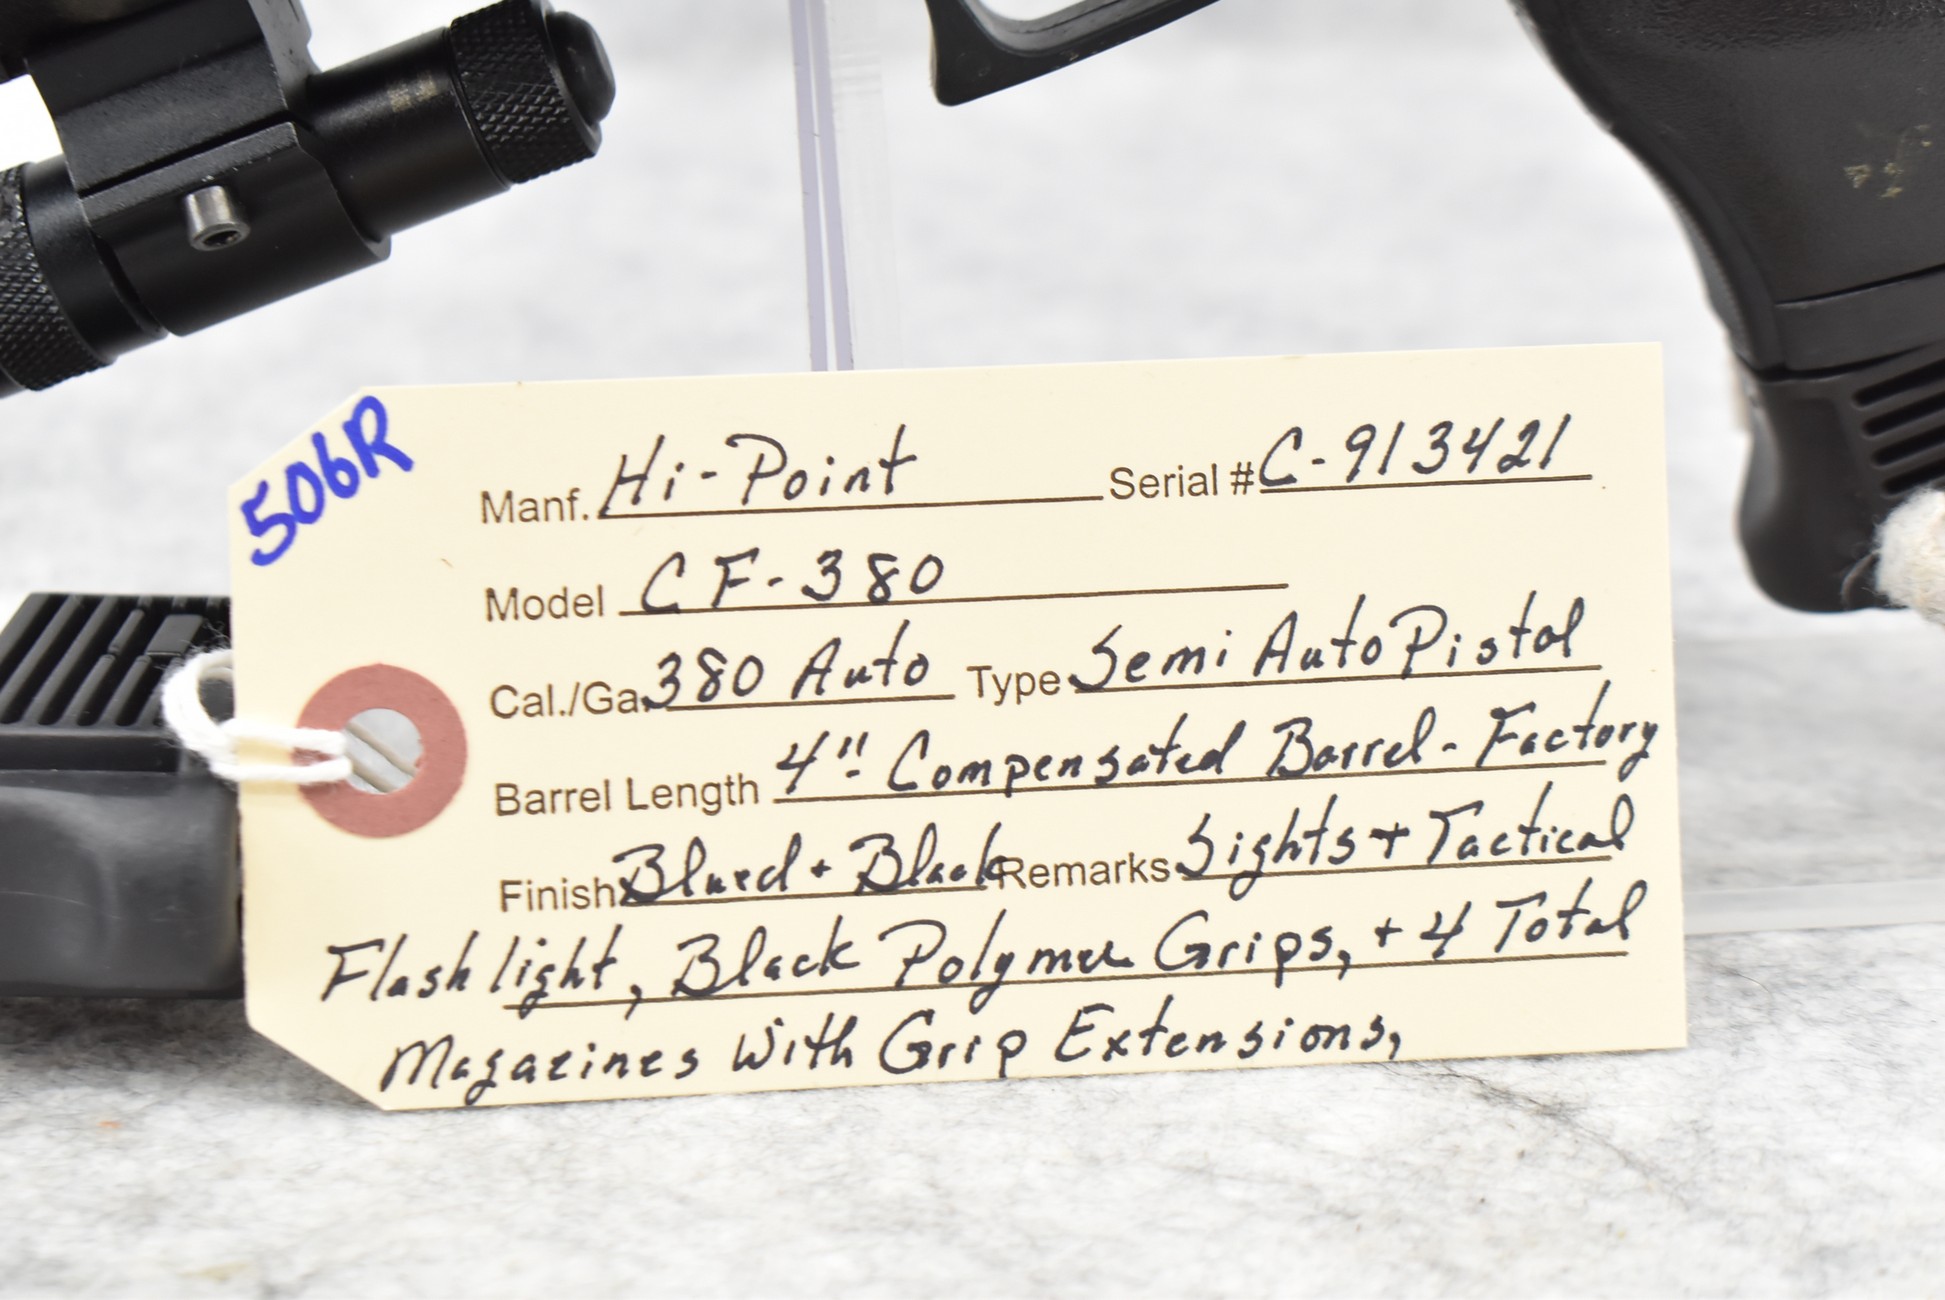 506R
Manf. Hi-Point Serial # C-913421
Model CF-380
Cal./Ga. 380 Auto Type Semi Auto Pistol
Barrel Length 4" Compensated Barrel - Factory
Finish Blued + Black Remarks Sights + Tactical
Flashlight, Black Polymer Grips, + 4 Total
Magazines With Grip Extensions,